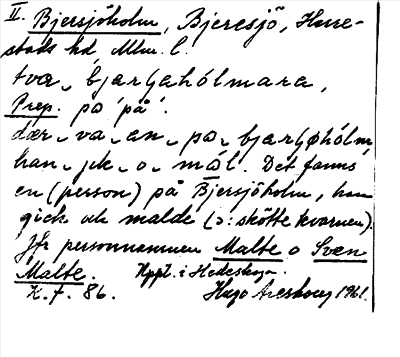 II. Bjersjöholm, Bjeresjö, Herre-
stads hd, Mlm. l.
tva, bjarɡahólmara,
Prep. pa 'på'.
dær va en pa bjarɡøhólm,
han jik o mól. Det fanns
en (person) på Bjersjöholm, han
gick och malde (ɔ: skötte kvarnen).
Jfr personnamnen Malte o Sven
Malte. Uppt. i Hedeskoga.
K. f. 86. Hugo Areskoug 1961.